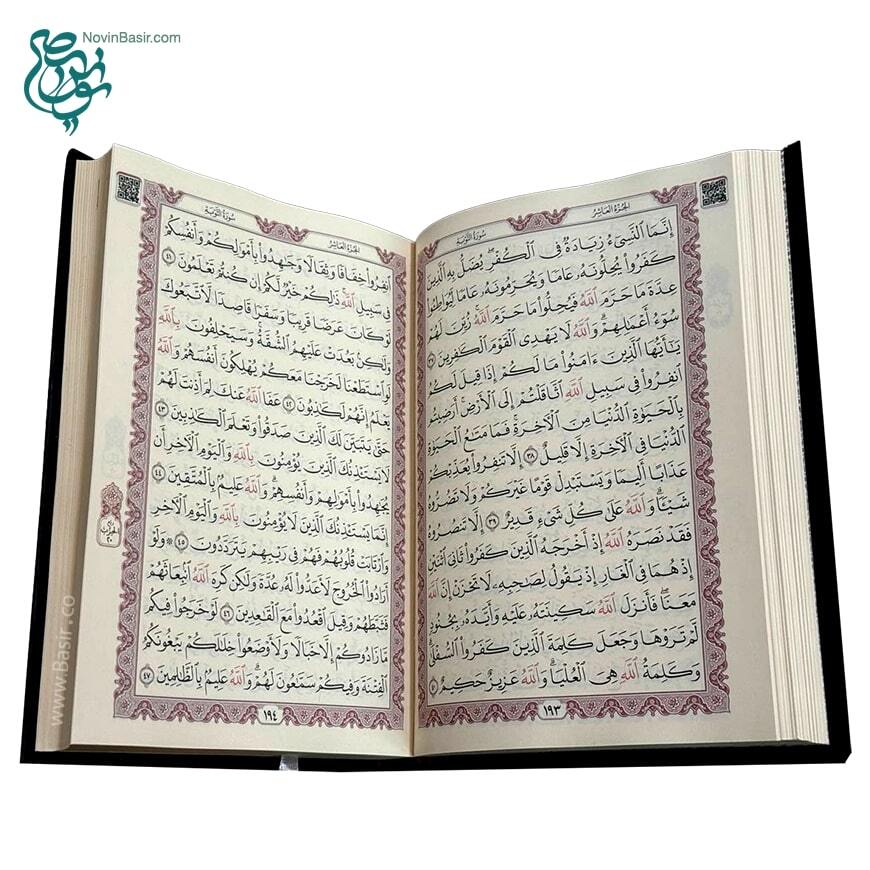 NovinBasir.com
الجزء العاشر
سورة التوبة
إِنَّمَا ٱلنَّسِىٓءُ زِيَادَةٌ فِى ٱلْكُفْرِ يُضَلُّ بِهِ ٱلَّذِينَ
كَفَرُوا۟ يُحِلُّونَهُۥ عَامًا وَيُحَرِّمُونَهُۥ عَامًا لِّيُوَاطِـُٔوا۟
عِدَّةَ مَا حَرَّمَ ٱللَّهُ فَيُحِلُّوا۟ مَا حَرَّمَ ٱللَّهُ زُيِّنَ لَهُمْ
سُوٓءُ أَعْمَـٰلِهِمْ وَٱللَّهُ لَا يَهْدِى ٱلْقَوْمَ ٱلْكَـٰفِرِينَ ٣٧
يَـٰٓأَيُّهَا ٱلَّذِينَ ءَامَنُوا۟ مَا لَكُمْ إِذَا قِيلَ لَكُمُ
ٱنفِرُوا۟ فِى سَبِيلِ ٱللَّهِ ٱثَّاقَلْتُمْ إِلَى ٱلْأَرْضِ أَرَضِيتُم
بِٱلْحَيَوٰةِ ٱلدُّنْيَا مِنَ ٱلْـَٔاخِرَةِ فَمَا مَتَـٰعُ ٱلْحَيَوٰةِ
ٱلدُّنْيَا فِى ٱلْـَٔاخِرَةِ إِلَّا قَلِيلٌ ٣٨ إِلَّا تَنفِرُوا۟ يُعَذِّبْكُمْ
عَذَابًا أَلِيمًا وَيَسْتَبْدِلْ قَوْمًا غَيْرَكُمْ وَلَا تَضُرُّوهُ
شَيْـًٔا وَٱللَّهُ عَلَىٰ كُلِّ شَىْءٍ قَدِيرٌ ٣٩ إِلَّا تَنصُرُوهُ
فَقَدْ نَصَرَهُ ٱللَّهُ إِذْ أَخْرَجَهُ ٱلَّذِينَ كَفَرُوا۟ ثَانِىَ ٱثْنَيْنِ
إِذْ هُمَا فِى ٱلْغَارِ إِذْ يَقُولُ لِصَـٰحِبِهِۦ لَا تَحْزَنْ إِنَّ ٱللَّهَ
مَعَنَا فَأَنزَلَ ٱللَّهُ سَكِينَتَهُۥ عَلَيْهِ وَأَيَّدَهُۥ بِجُنُودٍ
لَّمْ تَرَوْهَا وَجَعَلَ كَلِمَةَ ٱلَّذِينَ كَفَرُوا۟ ٱلسُّفْلَىٰ
وَكَلِمَةُ ٱللَّهِ هِىَ ٱلْعُلْيَا وَٱللَّهُ عَزِيزٌ حَكِيمٌ ٤٠
١٩٣
الجزء العاشر
سورة التوبة
ٱنفِرُوا۟ خِفَافًا وَثِقَالًا وَجَـٰهِدُوا۟ بِأَمْوَٰلِكُمْ وَأَنفُسِكُمْ
فِى سَبِيلِ ٱللَّهِ ذَٰلِكُمْ خَيْرٌ لَّكُمْ إِن كُنتُمْ تَعْلَمُونَ ٤١
لَوْ كَانَ عَرَضًا قَرِيبًا وَسَفَرًا قَاصِدًا لَّٱتَّبَعُوكَ
وَلَـٰكِنۢ بَعُدَتْ عَلَيْهِمُ ٱلشُّقَّةُ وَسَيَحْلِفُونَ بِٱللَّهِ
لَوِ ٱسْتَطَعْنَا لَخَرَجْنَا مَعَكُمْ يُهْلِكُونَ أَنفُسَهُمْ وَٱللَّهُ
يَعْلَمُ إِنَّهُمْ لَكَـٰذِبُونَ ٤٢ عَفَا ٱللَّهُ عَنكَ لِمَ أَذِنتَ لَهُمْ
حَتَّىٰ يَتَبَيَّنَ لَكَ ٱلَّذِينَ صَدَقُوا۟ وَتَعْلَمَ ٱلْكَـٰذِبِينَ ٤٣
لَا يَسْتَـْٔذِنُكَ ٱلَّذِينَ يُؤْمِنُونَ بِٱللَّهِ وَٱلْيَوْمِ ٱلْـَٔاخِرِ أَن
يُجَـٰهِدُوا۟ بِأَمْوَٰلِهِمْ وَأَنفُسِهِمْ وَٱللَّهُ عَلِيمٌۢ بِٱلْمُتَّقِينَ ٤٤
إِنَّمَا يَسْتَـْٔذِنُكَ ٱلَّذِينَ لَا يُؤْمِنُونَ بِٱللَّهِ وَٱلْيَوْمِ ٱلْـَٔاخِرِ
وَٱرْتَابَتْ قُلُوبُهُمْ فَهُمْ فِى رَيْبِهِمْ يَتَرَدَّدُونَ ٤٥ ۞ وَلَوْ
أَرَادُوا۟ ٱلْخُرُوجَ لَأَعَدُّوا۟ لَهُۥ عُدَّةً وَلَـٰكِن كَرِهَ ٱللَّهُ ٱنۢبِعَاثَهُمْ
فَثَبَّطَهُمْ وَقِيلَ ٱقْعُدُوا۟ مَعَ ٱلْقَـٰعِدِينَ ٤٦ لَوْ خَرَجُوا۟ فِيكُم
مَّا زَادُوكُمْ إِلَّا خَبَالًا وَلَأَوْضَعُوا۟ خِلَـٰلَكُمْ يَبْغُونَكُمُ
ٱلْفِتْنَةَ وَفِيكُمْ سَمَّـٰعُونَ لَهُمْ وَٱللَّهُ عَلِيمٌۢ بِٱلظَّـٰلِمِينَ ٤٧
١٩٤
www.Basir.co